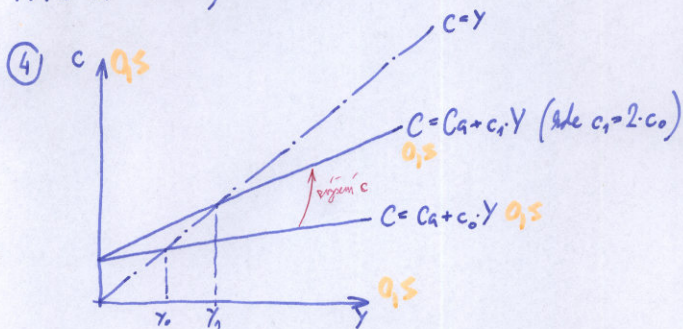 C=Y
④ C 0,5
C = Ca + c₁·Y (kde c₁=2·c₀)
0,5
zvýšení c
C = Ca + c₀·Y 0,5
0,5
Y₀ Y₁ Y